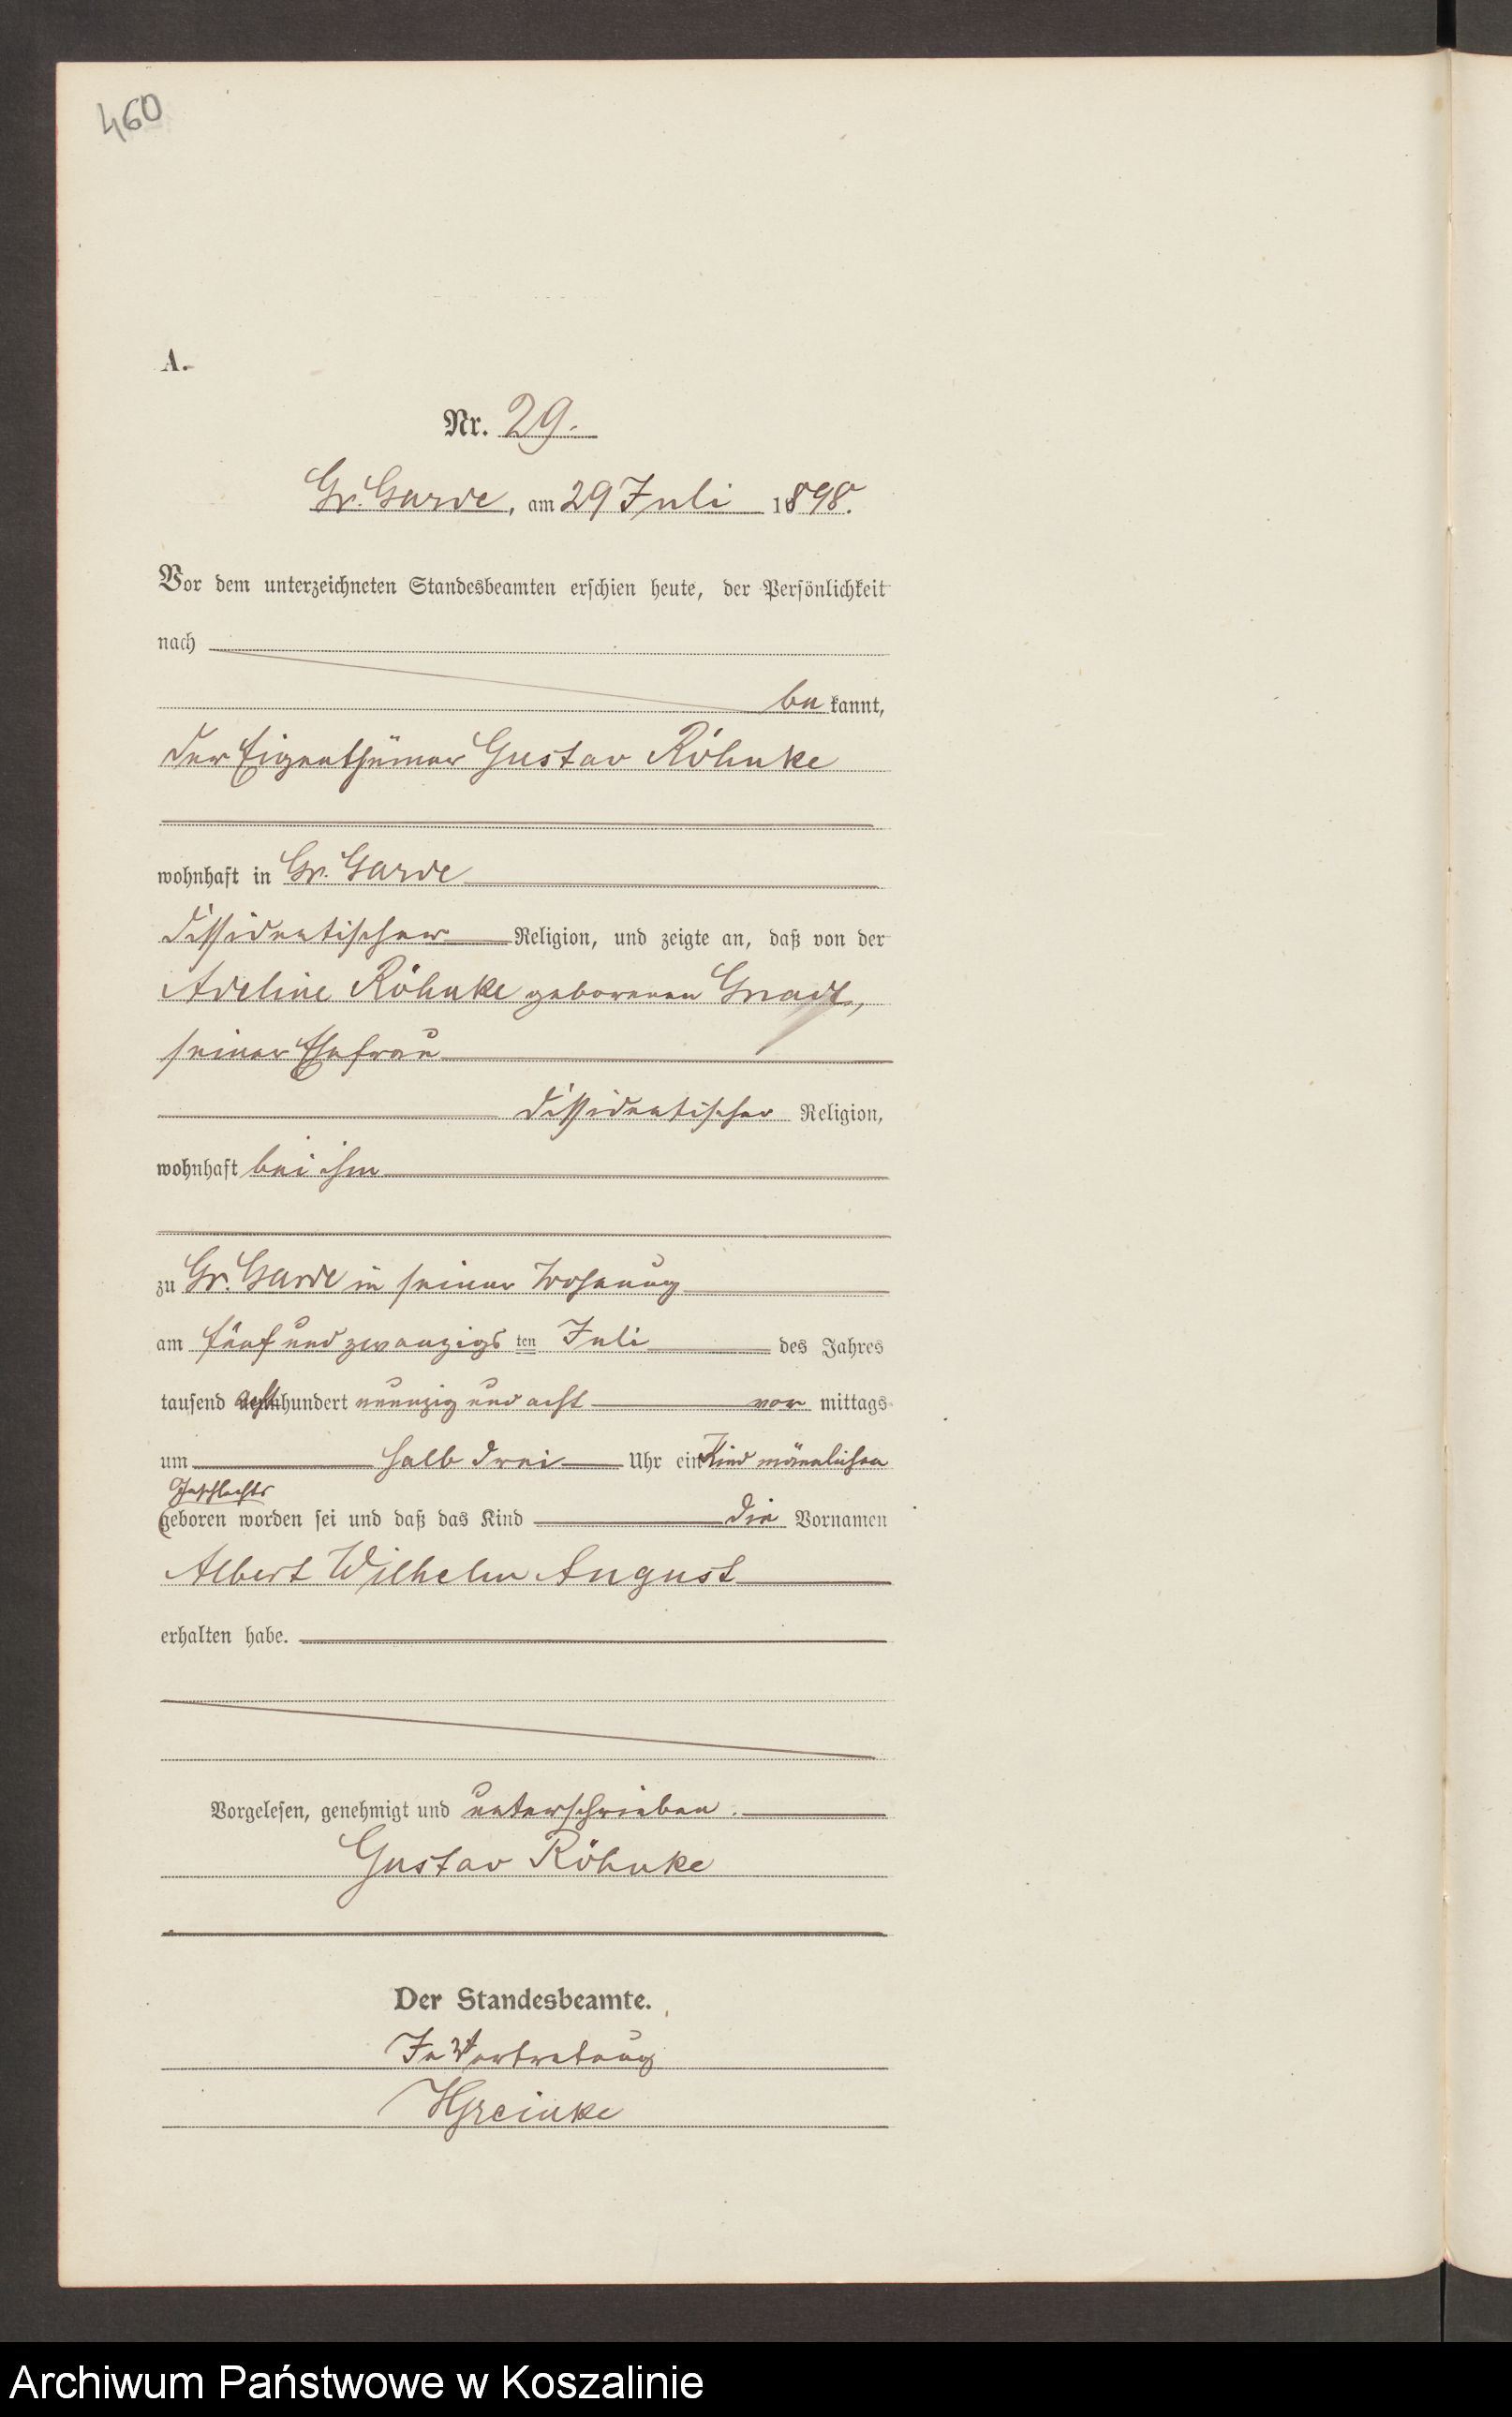 460
A.
Nr. 29.
Gr. Garde, am 29 Juli 1898.
Vor dem unterzeichneten Standesbeamten erschien heute, der Persönlichkeit
nach
be kannt,
der Eigenthümer Gustav Röhnke
wohnhaft in Gr. Garde
dissidentischer Religion, und zeigte an, daß von der
Adeline Röhnke geborenen
seiner Ehefrau
dissidentischer Religion,
wohnhaft bei ihm
zu Gr. Garde in seiner Wohnung
am fünf und zwanzigs ten Juli des Jahres
tausend acht hundert neunzig und acht vor mittags
um halb drei Uhr ein Kind männlichen
Geschlechts
geboren worden sei und daß das Kind die Vornamen
Albert Wilhelm August
erhalten habe.
Vorgelesen, genehmigt und unterschrieben.
Gustav Röhnke
Der Standesbeamte.
In Vertretung
HGreinke
Archiwum Państwowe w Koszalinie